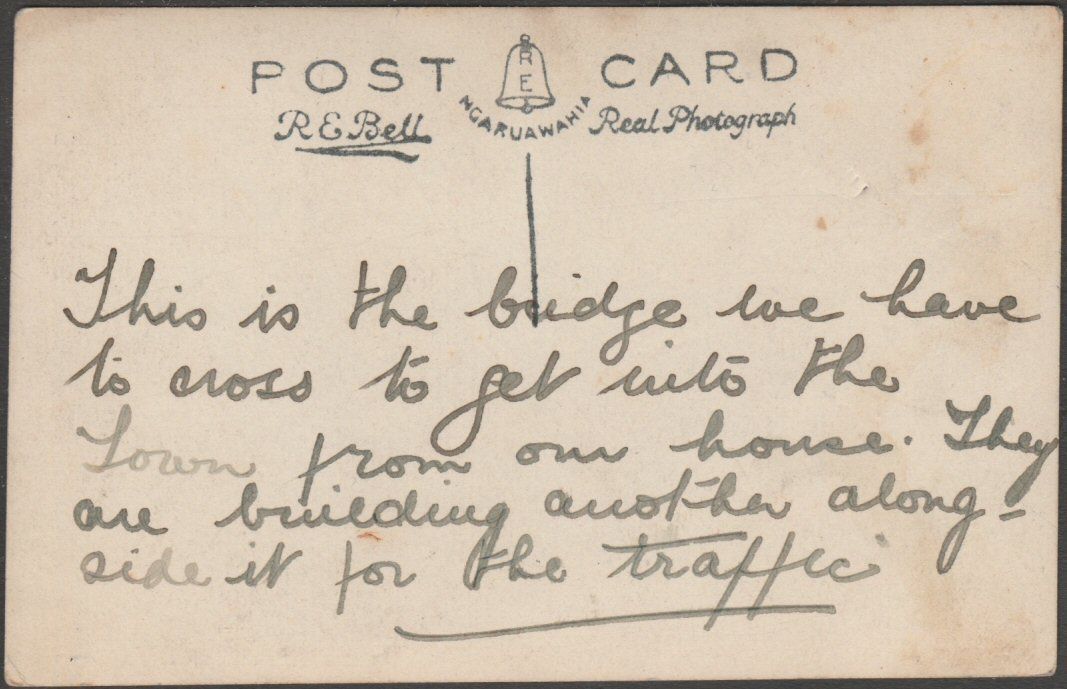 POST CARD
R E
NGARUAWAHIA
R E Bell Real Photograph
This is the bridge we have
to cross to get into the
Town from our house. They
are building another along-
side it for the traffic